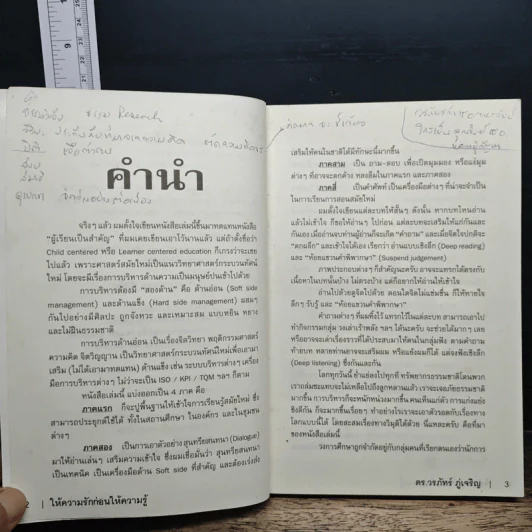 Research
คำนำ
จริงๆ แล้ว ผมตั้งใจเขียนหนังสือเล่มนี้ขึ้นมาทดแทนหนังสือ
"ผู้เรียนเป็นสำคัญ" ที่ผมเคยเขียนเอาไว้นานแล้ว แต่ถ้าตั้งชื่อว่า
Child centered หรือ Learner centered education ก็เกรงว่าจะเชย
ไปแล้ว เพราะศาสตร์สมัยใหม่เป็นแนววิทยาศาสตร์กระบวนทัศน์
ใหม่ โดยจะมีเรื่องการบริหารด้านความเป็นมนุษย์ปนเข้าไปด้วย
การบริหารต้องมี "สองด้าน" คือ ด้านอ่อน (Soft side
management) และด้านแข็ง (Hard side management) ผสมๆ
กันไปอย่างมีศิลปะ ถูกจังหวะ และเหมาะสม แบบหยิน หยาง
และไม่ฝืนธรรมชาติ
การบริหารด้านอ่อน เป็นเรื่องจิตวิทยา พฤติกรรมศาสตร์
ความคิด จิตวิญญาณ เป็นวิทยาศาสตร์กระบวนทัศน์ใหม่เพื่อเอามา
เสริม (ไม่ได้เอามาทดแทน) ด้านแข็ง เช่น ระบบบริหารต่างๆ เครื่อง
มือการบริหารต่างๆ ไม่ว่าจะเป็น ISO / KPI / TQM ฯลฯ ก็ตาม
หนังสือเล่มนี้ แบ่งออกเป็น 4 ภาค คือ
ภาคแรก ก็จะปูพื้นฐานให้เข้าใจการเรียนรู้สมัยใหม่ ซึ่ง
สามารถประยุกต์ใช้ได้ ทั้งในสถานศึกษา ในองค์กร และในชุมชน
ต่างๆ
ภาคสอง เป็นการเอาตัวอย่าง สุนทรียสนทนา (Dialogue)
มาให้อ่านเล่นๆ เสริมความเข้าใจ ซึ่งผมเชื่อมั่นว่า สุนทรียสนทนา
เป็นเทคนิค เป็นเครื่องมือด้าน Soft side ที่สำคัญ และต้องเร่งส่ง
2 | ให้ความรักก่อนให้ความรู้
เสริมให้คนในชาติได้มีทักษะนี้มากขึ้น
ภาคสาม เป็น ถาม-ตอบ เพื่อเปิดมุมมอง หรือแง่มุม
ต่างๆ ที่อาจจะตกค้าง หลงลืมในภาคแรก และภาคสอง
ภาคสี่ เป็นคำศัพท์ เป็นเครื่องมือต่างๆ ที่น่าจะจำเป็น
ในการเรียนการสอนสมัยใหม่
ผมตั้งใจเขียนแต่ละบทให้สั้นๆ ดังนั้น หากบทไหนอ่าน
แล้วไม่เข้าใจ ก็ขอให้อ่านๆ ไปก่อน แต่ละบทจะเสริมให้แก่กันและ
กันเอง เมื่ออ่านจบท่านผู้อ่านก็จะเกิด "คำถาม" และเมื่อจิตใจไปกติจะ
"ตกผลึก" และเข้าใจได้เอง เรียกว่า อ่านแบบเชิงลึก (Deep reading)
และ "ห้อยแขวนคำพิพากษา" (Suspend judgement)
ภาพประกอบต่างๆ ก็สำคัญนะครับ อาจจะแทรกได้ตรงกับ
เนื้อหาในบทนั้นบ้าง ไม่ตรงบ้าง แต่ก็อยากให้อ่านให้เข้าใจ
อ่านไปด้วยดูจิตไปด้วย ตอนใดจิตไม่แช่มชื่น ก็ให้หายใจ
ลึกๆ รับรู้ และ "ห้อยแขวนคำพิพากษา"
คำถามต่างๆ ที่ผมทิ้งไว้ แทรกไว้ในแต่ละบท สามารถเอาไป
ทำกิจกรรมกลุ่ม วงเล่าเร้าพลัง ฯลฯ ได้นะครับ จะช่วยได้มากๆ เลย
หรืออาจจะเล่าเรื่องราวที่ได้ประสบมาให้คนในกลุ่มฟัง ตามคำถาม
ท้ายบท หลายท่านอาจจะเสริมผม หรือแย้งผมก็ได้ แต่จงฟังเชิงลึก
(Deep listening) ซึ่งกันและกัน
โลกทุกวันนี้ ย่ำแย่ลงไปทุกที ทรัพยากรธรรมชาติโดนพวก
เราถล่มซะแทบจะไม่เหลือไปถึงลูกหลานแล้ว เราจะเจอภัยธรรมชาติ
มากขึ้น การบริหารก็จะหนักหน่วงมากขึ้น คนเห็นแก่ตัว การแก่งแย่ง
ชิงดีกัน ก็จะมากขึ้นเรื่อยๆ ทำอย่างไรเราจะเอาตัวรอดกับเรื่องทาง
โลกแบบนี้ได้ โดยสะสมเรื่องทางวิมุตติได้ด้วย นี่แหละครับ คือที่มา
ของหนังสือเล่มนี้
วงการศึกษาถูกจำกัดอยู่กับกลุ่มคนที่เรียกตนเองว่านักการ
ดร.วรภัทร์ ภู่เจริญ | 3